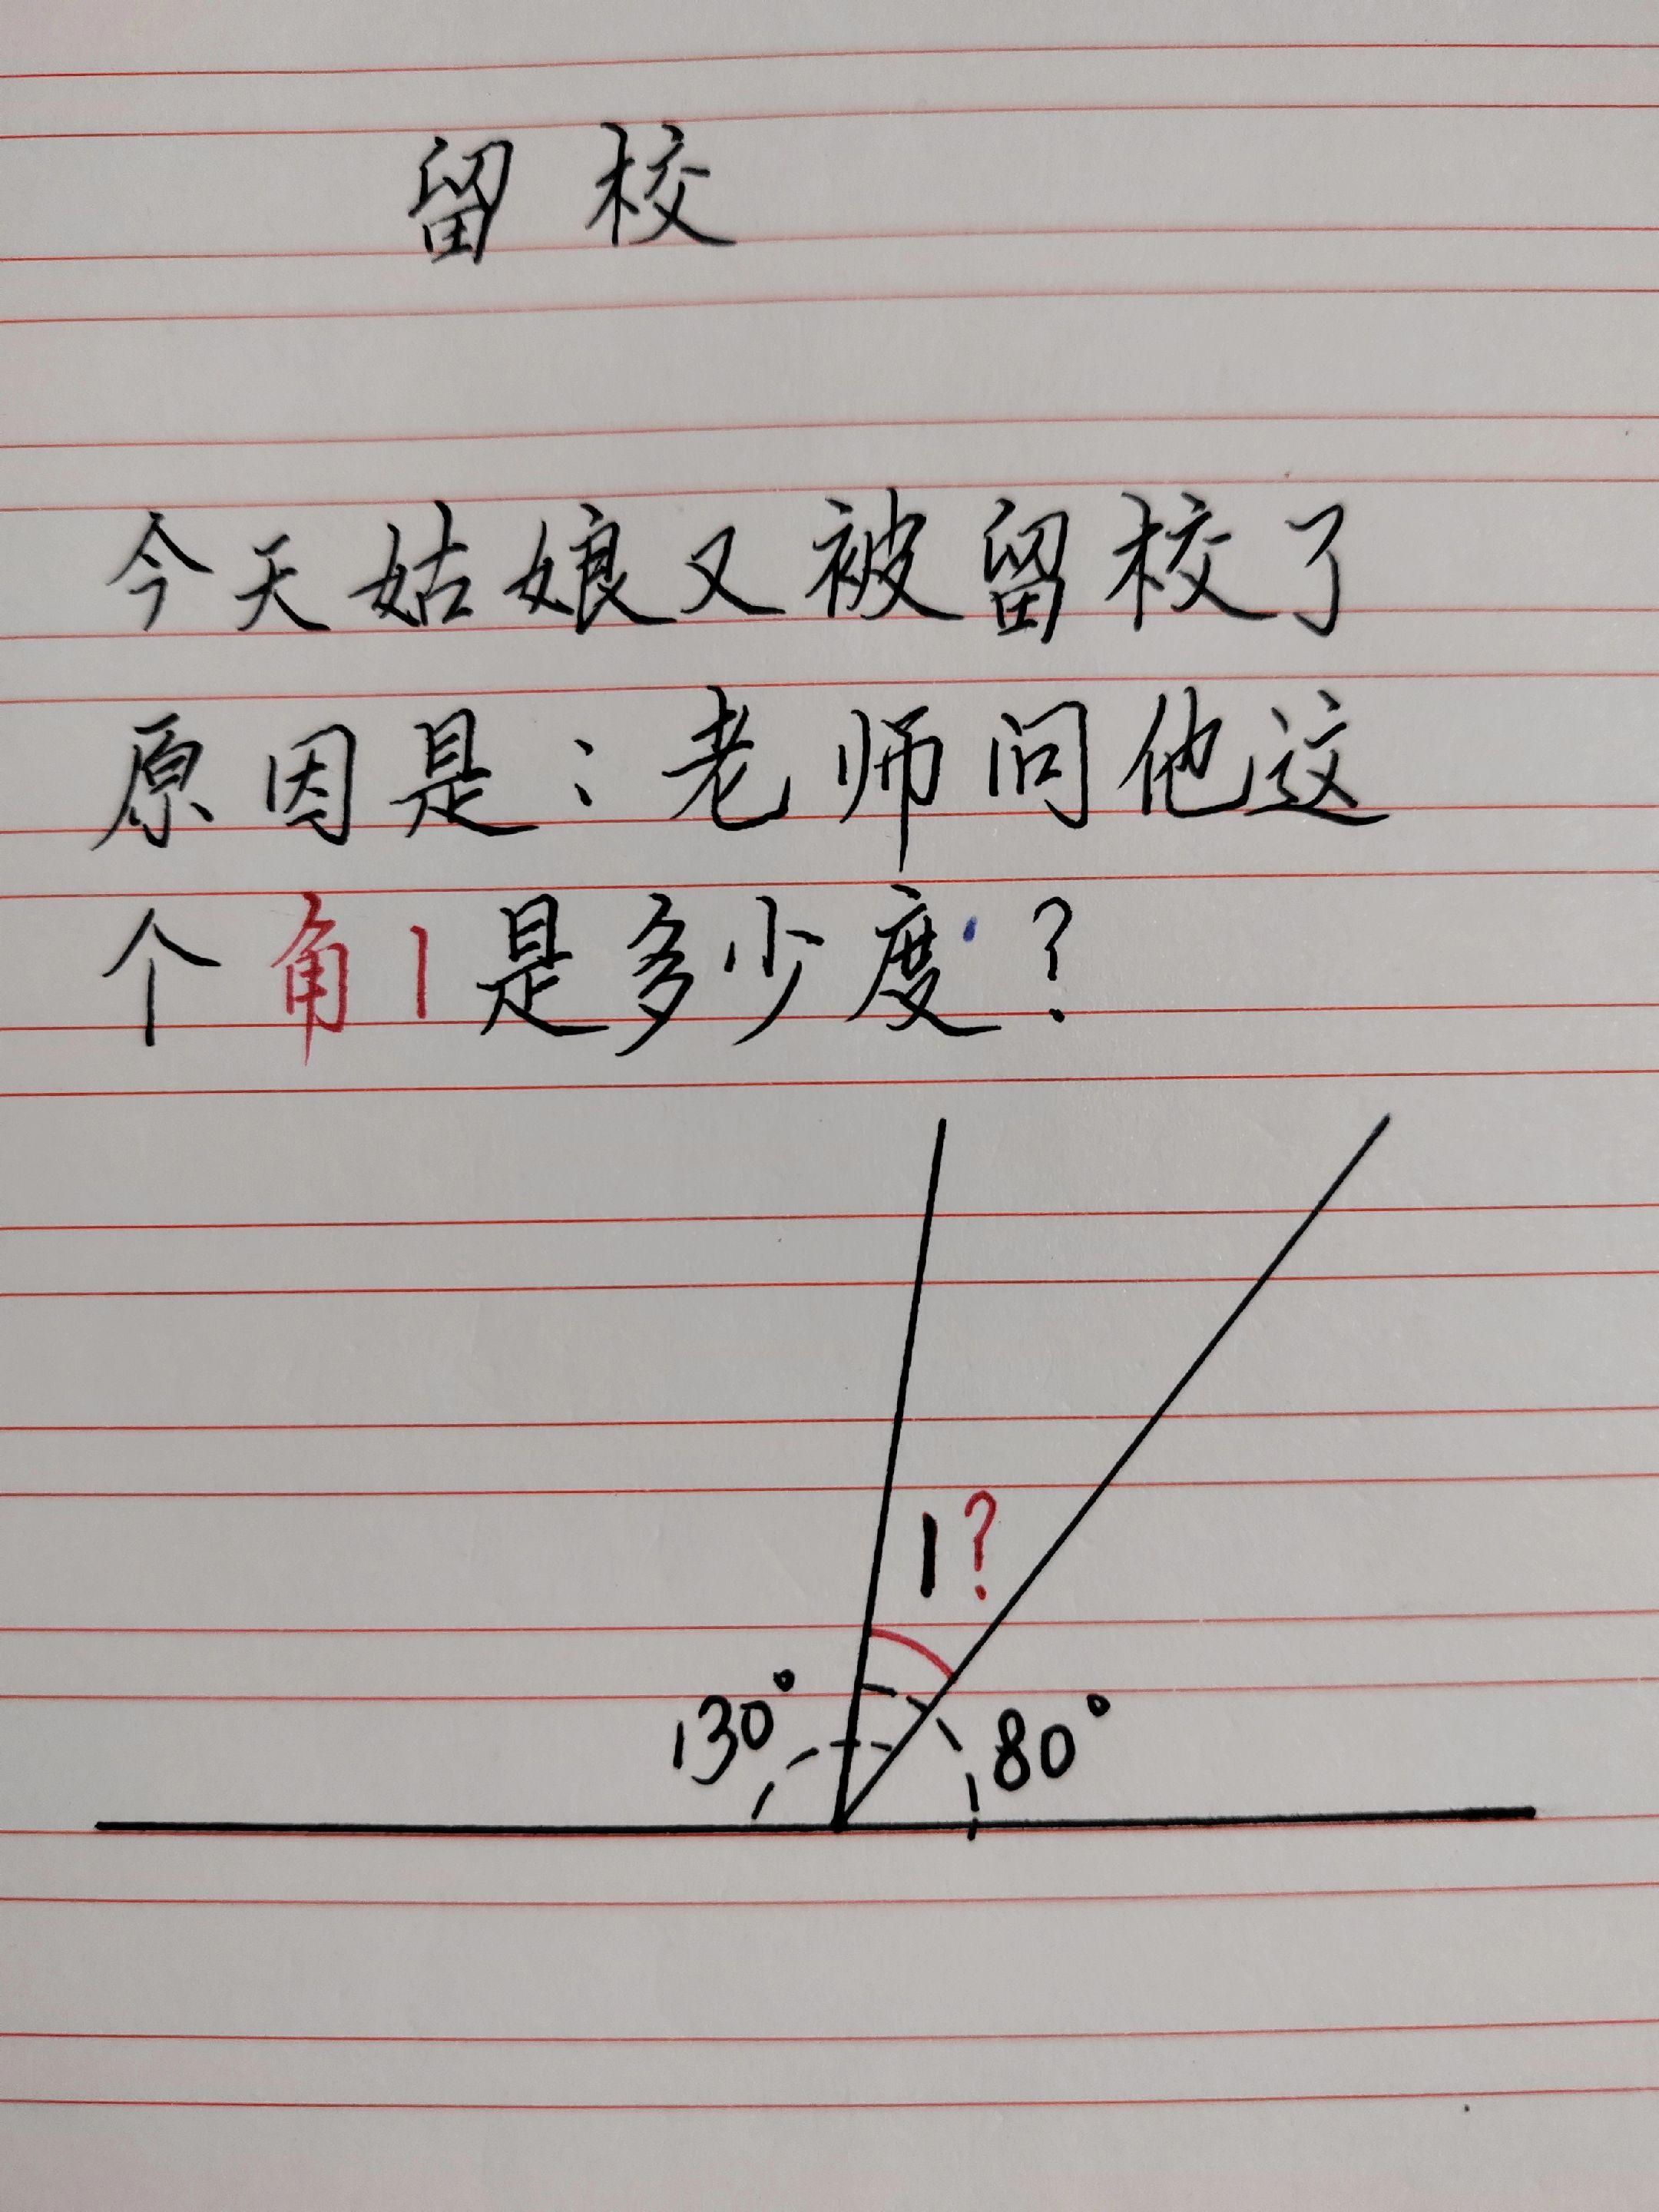 留校
今天姑娘又被留校了
原因是：老师问他这
个角1是多少度？
1?
130° 80°